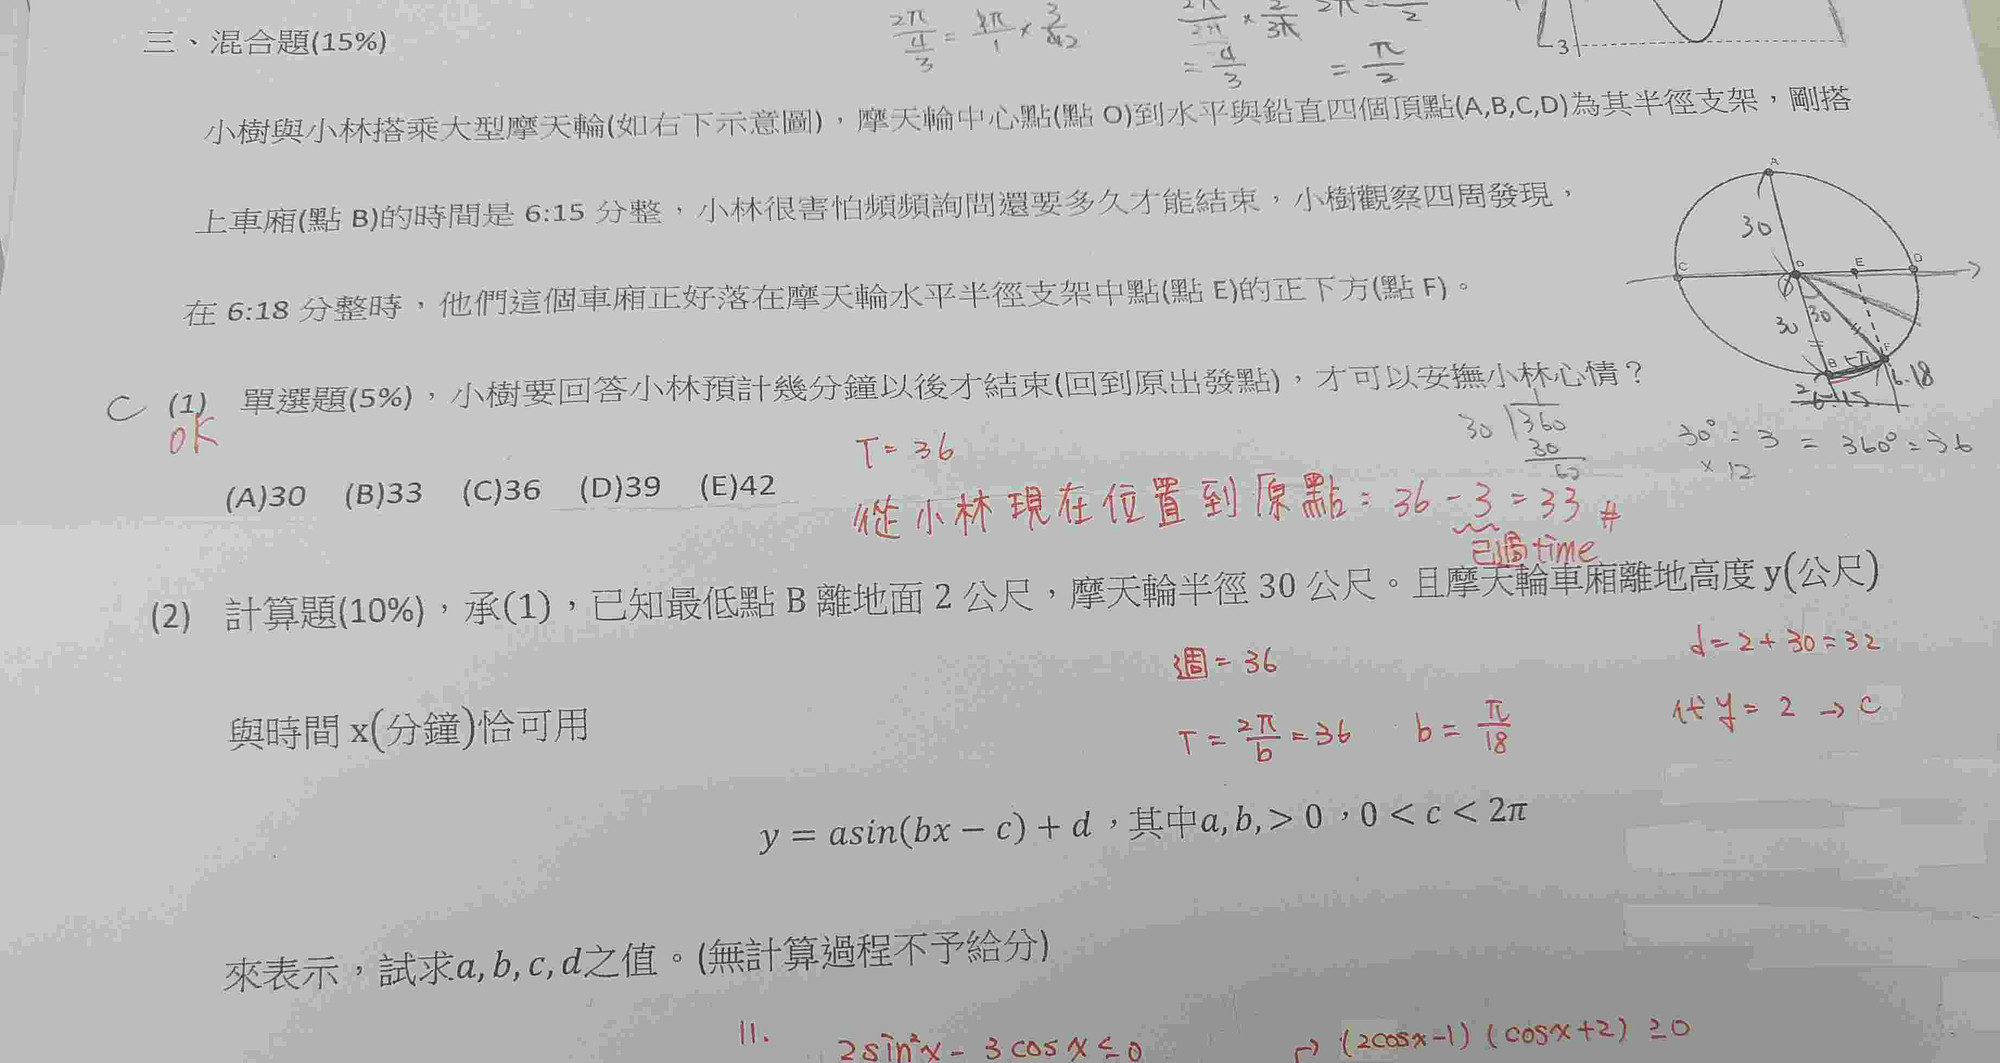 三、混合題(15%)
2π/(4/3) = 2π/1 × 3/42
= 4/3
= π/2
-3
小樹與小林搭乘大型摩天輪(如右下示意圖)，摩天輪中心點(點 O)到水平與鉛直四個頂點(A,B,C,D)為其半徑支架，剛搭
上車廂(點 B)的時間是 6:15 分整，小林很害怕頻頻詢問還要多久才能結束，小樹觀察四周發現，
在 6:18 分整時，他們這個車廂正好落在摩天輪水平半徑支架中點(點 E)的正下方(點 F)。
A
30
C
O
E
D
30
30
B
F
2
6:15
6:18
C (1) 單選題(5%)，小樹要回答小林預計幾分鐘以後才結束(回到原出發點)，才可以安撫小林心情？
OK
T = 36
30 360
30
30° = 3 = 360° = 36
× 12
(A)30 (B)33 (C)36 (D)39 (E)42
從小林現在位置到原點 = 36 - 3 = 33 #
已過time
(2) 計算題(10%)，承(1)，已知最低點 B 離地面 2 公尺，摩天輪半徑 30 公尺。且摩天輪車廂離地高度 y(公尺)
週 = 36
d = 2 + 30 = 32
與時間 x(分鐘)恰可用
T = 2π/b = 36 b = π/18
代 y = 2 → c
y = asin(bx − c) + d，其中a, b, > 0，0 < c < 2π
來表示，試求a, b, c, d之值。(無計算過程不予給分)
11. 2sin²x - 3cosx ≤ 0 → (2cosx-1)(cosx+2) ≥ 0